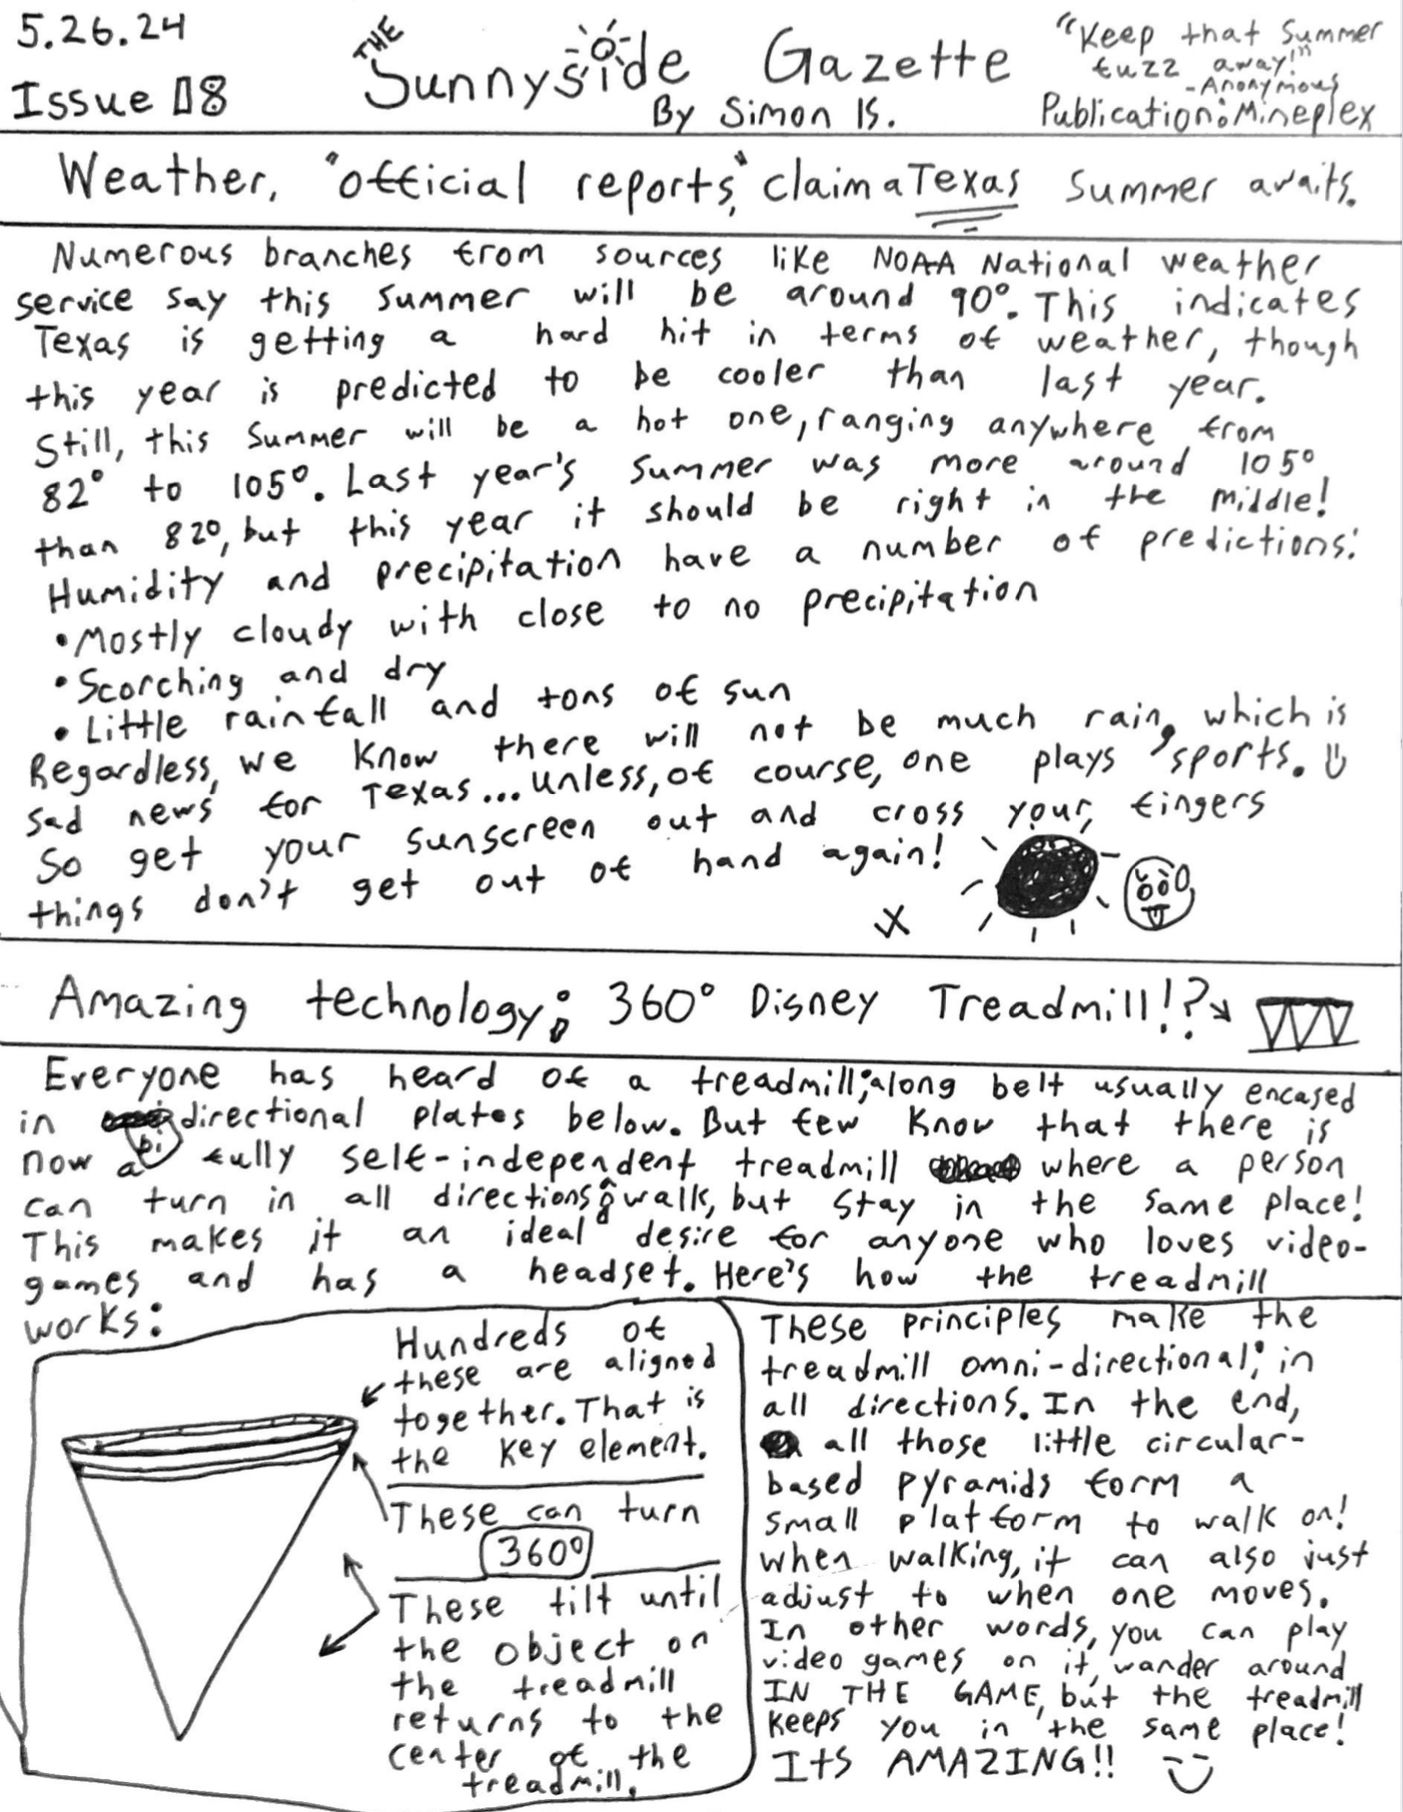 5.26.24
Issue 18
THE Sunnyside Gazette
By Simon IS.
"Keep that Summer
fuzz away!"
-Anonymous
Publication: Mineplex
Weather, "official reports," claim a Texas Summer awaits.
Numerous branches from sources like NOAA National weather
service say this summer will be around 90°. This indicates
Texas is getting a hard hit in terms of weather, though
this year is predicted to be cooler than last year.
Still, this Summer will be a hot one, ranging anywhere from
82° to 105°. Last year's summer was more around 105°
than 82°, but this year it should be right in the middle!
Humidity and precipitation have a number of predictions:
•Mostly cloudy with close to no precipitation
•Scorching and dry
•Little rainfall and tons of sun
Regardless, we know there will not be much rain, which is
sad news for Texas... unless, of course, one plays sports.
So get your sunscreen out and cross your fingers
things don't get out of hand again!
Amazing technology; 360° Disney Treadmill!?
Everyone has heard of a treadmill; a long belt usually encased
in bidirectional plates below. But few know that there is
now a fully self-independent treadmill where a person
can turn in all directions & walk, but stay in the same place!
This makes it an ideal desire for anyone who loves video-
games and has a headset. Here's how the treadmill
works:
Hundreds of
these are aligned
together. That is
the key element.
These can turn
360°
These tilt until
the object on
the treadmill
returns to the
center of the
treadmill.
These principles make the
treadmill omni-directional; in
all directions. In the end,
all those little circular-
based pyramids form a
small platform to walk on!
When walking, it can also just
adjust to when one moves.
In other words, you can play
video games on it, wander around
IN THE GAME, but the treadmill
keeps you in the same place!
Its AMAZING!!